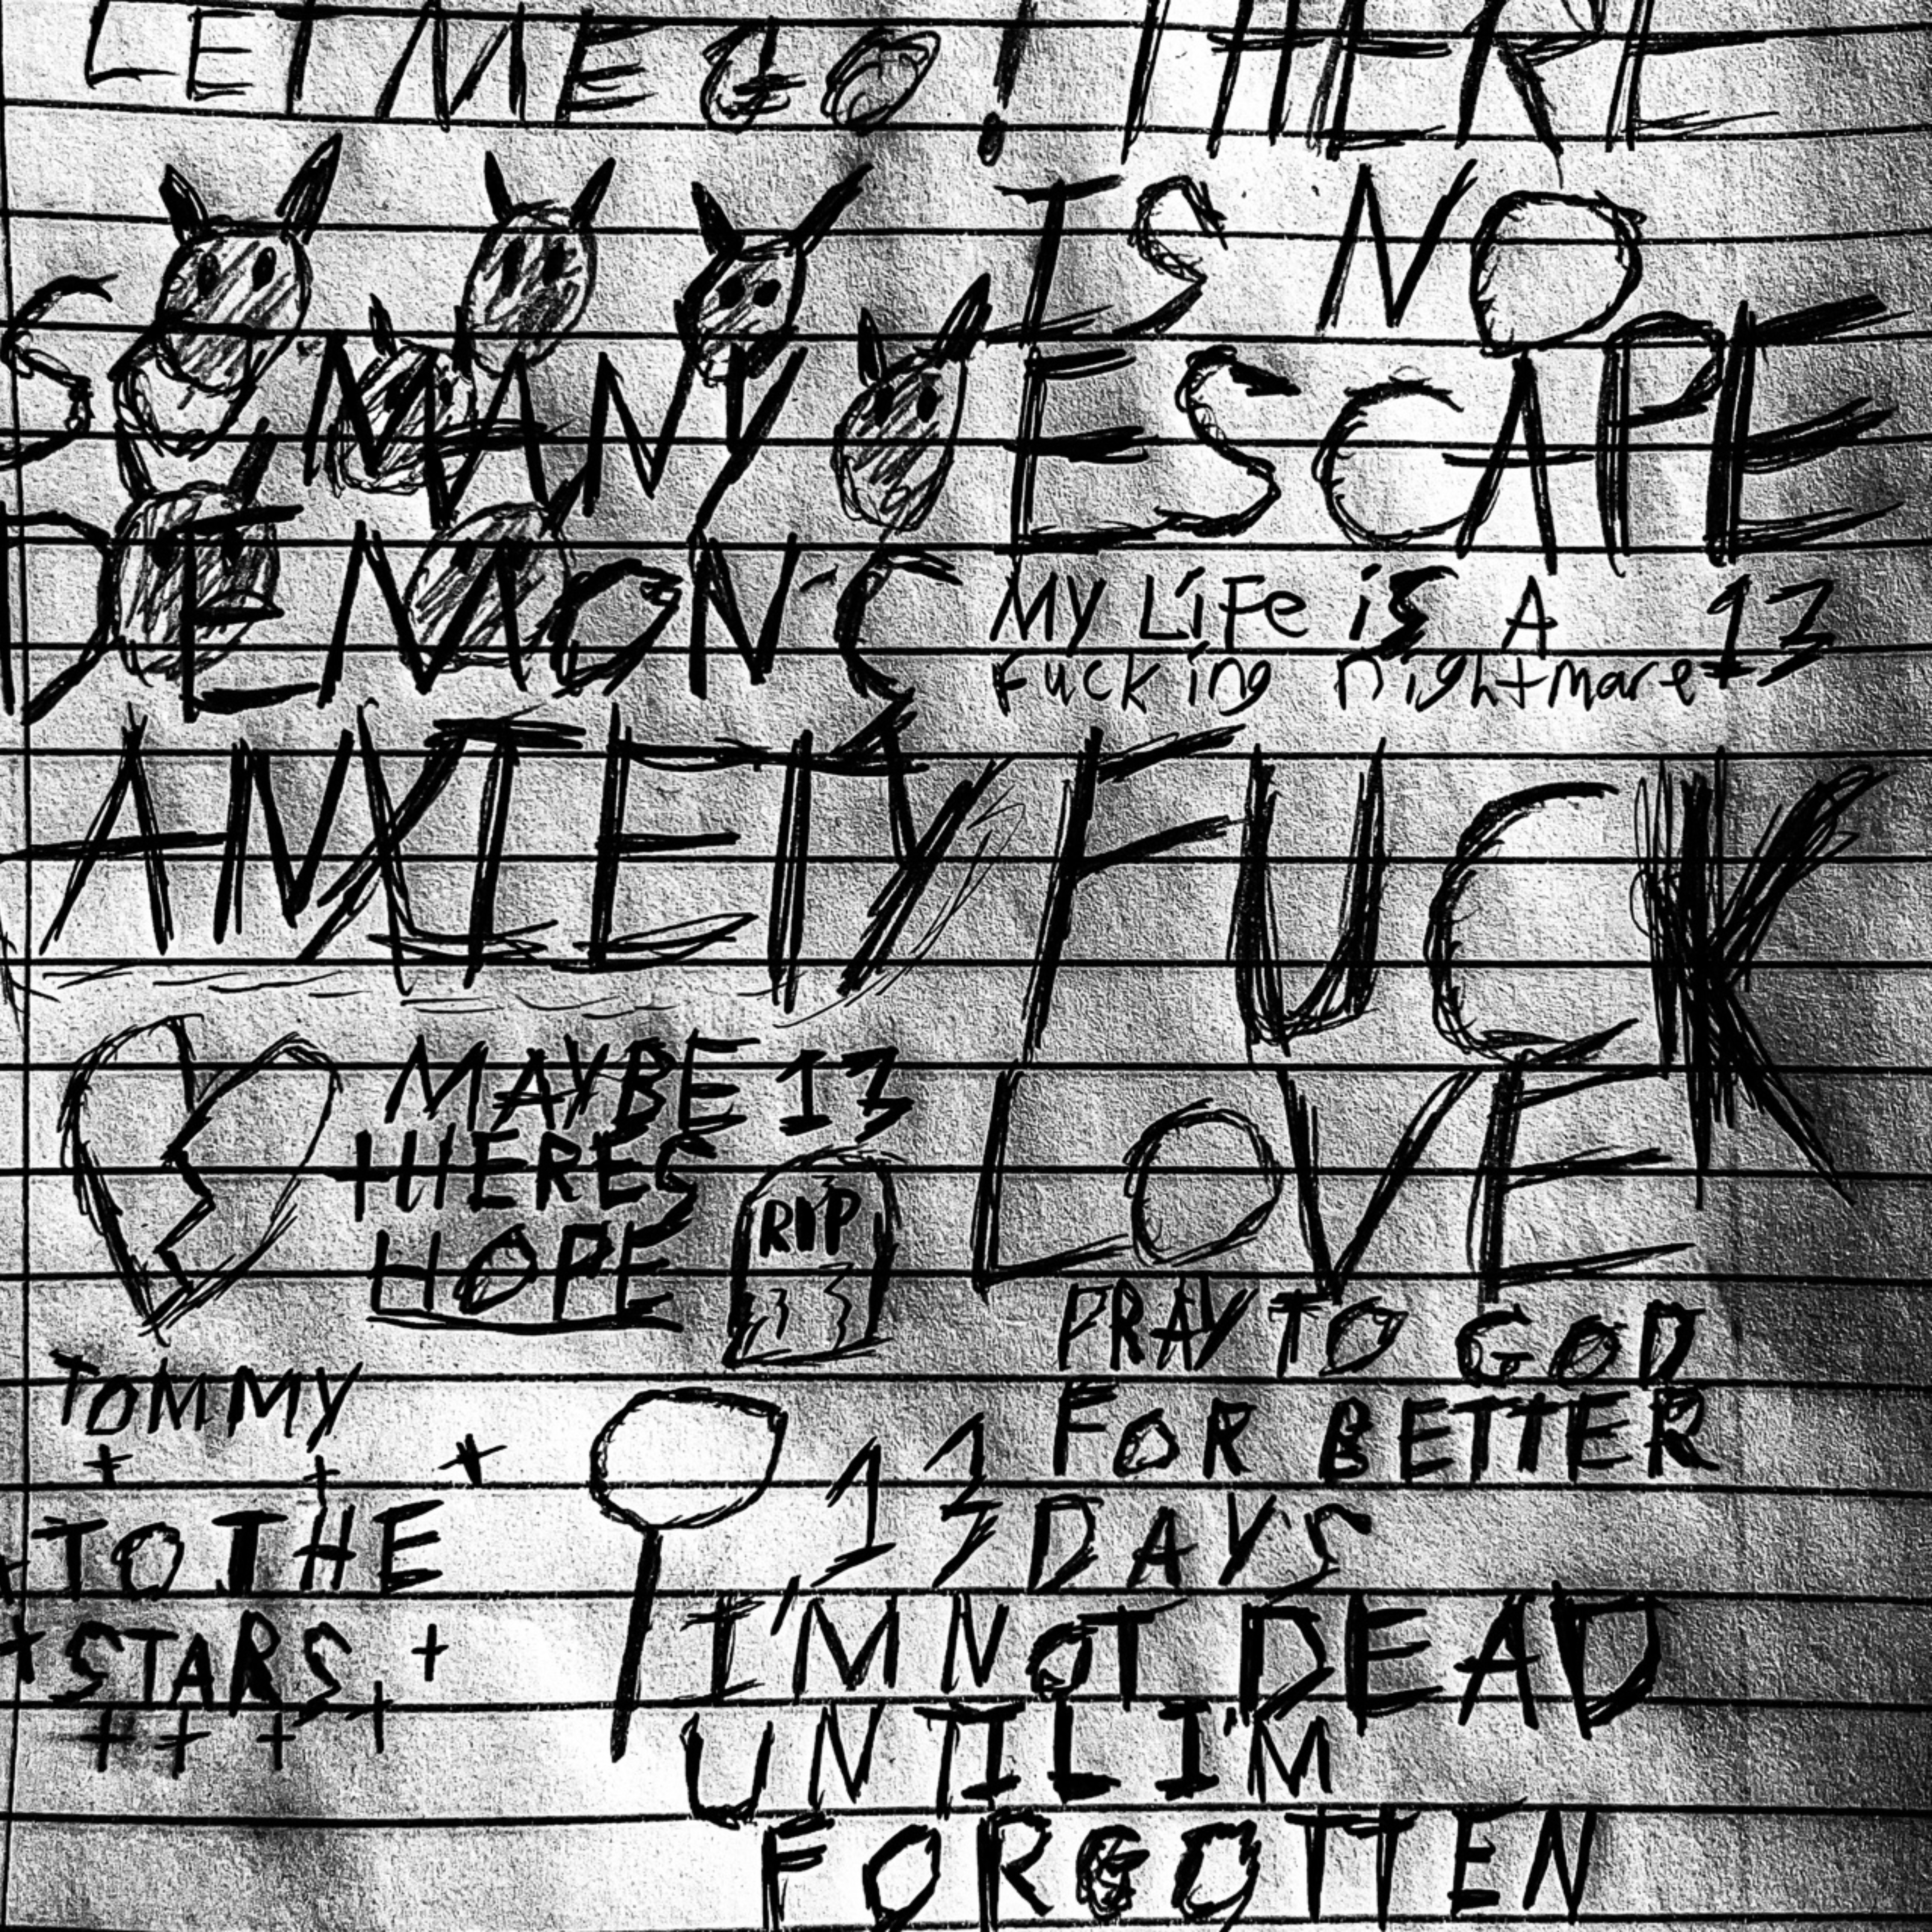 LET ME GO! THERE
IS NO
ESCAPE
SO MANY
DEMONS
MY LiFe iS A
Fucking nightmare
13
ANXIETY
FUCK
LOVE
MAYBE
THERES
HOPE
13
RIP
13
PRAY TO GOD
FOR BETTER
DAYS
TOMMY
TO THE
STARS
13
I'M NOT DEAD
UNTIL I'M
FORGOTTEN